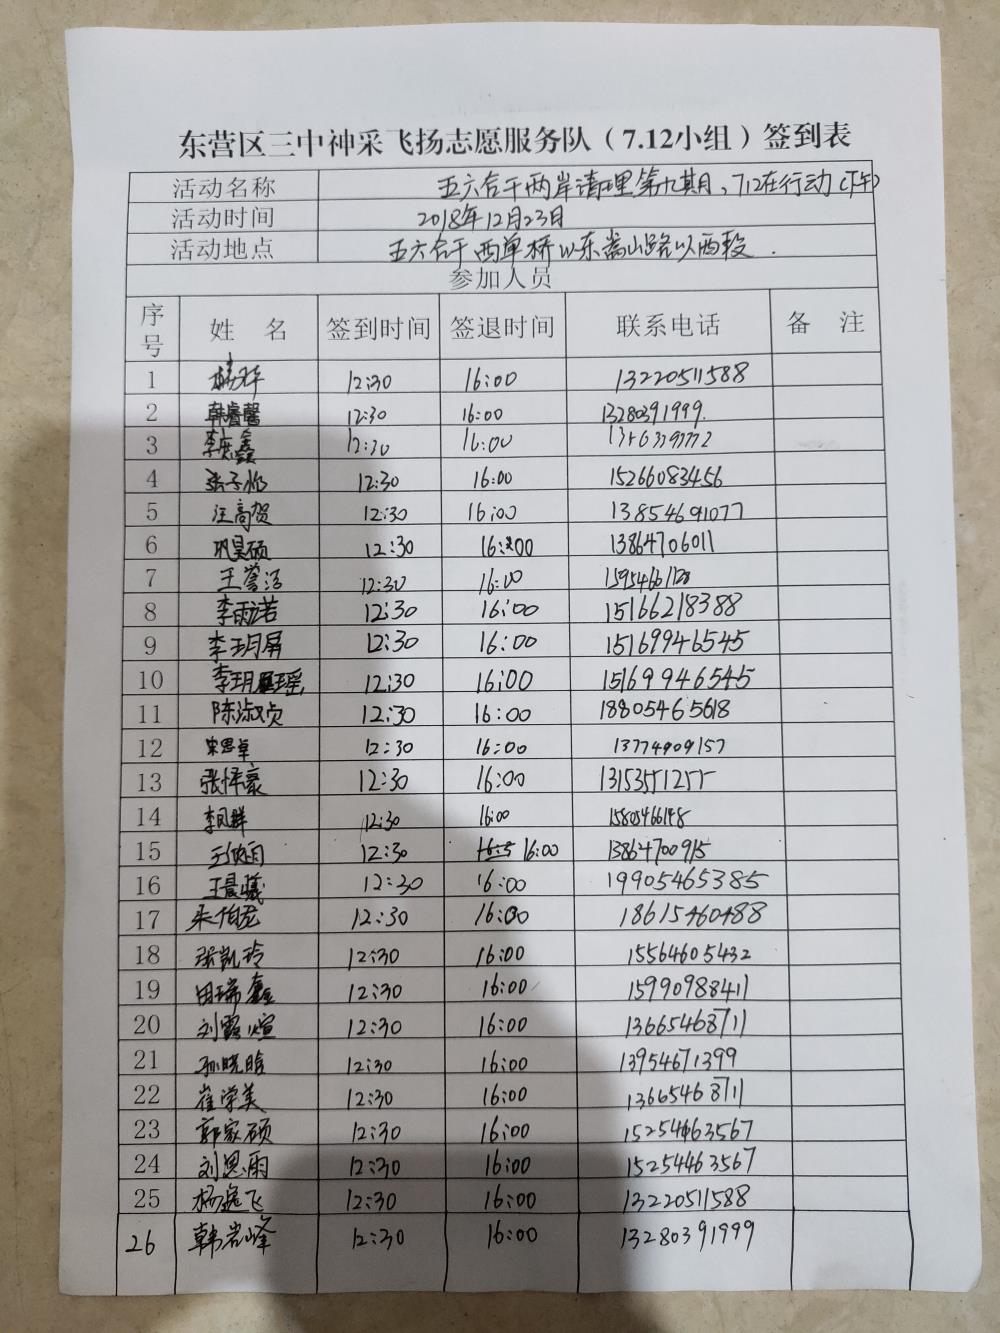 东营区三中神采飞扬志愿服务队（7.12小组）签到表
活动名称 五六合干两岸清理第九期、712在行动（下午）
活动时间 2018年12月23日
活动地点 五六合干西单桥以东嵩山路以西段.
参加人员
序号 姓 名 签到时间 签退时间 联系电话 备 注
1 杨 12:30 16:00 13220511588
2 韩睿馨 12:30 16:00 13280391999.
3 李 鑫 12:30 16:00
4 张子怡 12:30 16:00 15266083456
5 汪高贺 12:30 16:00 13854691077
6 巩昊硕 12:30 16:00 13864706011
7 王誉 12:30 16:00
8 李雨诺 12:30 16:00 15166218388
9 李玥屏 12:30 16:00 15169946545
10 李玥瑶 12:30 16:00 15169946545
11 陈淑贞 12:30 16:00 18805465618
12 宋思卓 12:30 16:00 13774909157
13 张怿豪 12:30 16:00 13153551255
14 李凤群 12:30 16:00
15 王 雨 12:30 16:00 13864700915
16 王晨曦 12:30 16:00 19905465385
17 朱伯君 12:30 16:00 18615460488
18 张凯玲 12:30 16:00 15564605432
19 田瑞鑫 12:30 16:00 15990988411
20 刘露煊 12:30 16:00 13665468711
21 孙晓晗 12:30 16:00 13954671399
22 崔学美 12:30 16:00 13665468711
23 郭家硕 12:30 16:00 15254463567
24 刘思雨 12:30 16:00 15254463567
25 杨逸飞 12:30 16:00 13220511588
26 韩岩峰 12:30 16:00 13280391999